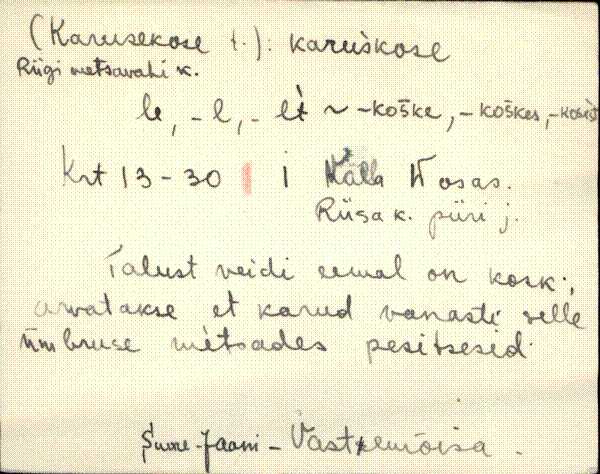 (Karusekose t.): karùskose
Riigi metsavahi k.
le, -l, - lt ~ -koške, -koškes, -
Krt 13-30 | i Kosas.
Riisa k. piiri j.
Talust veidi eemal on kosk;
arvatakse et karud vanasti selle
ümbruse mètsades pesitsesid.
Suure-Jaani - Vastemõisa.